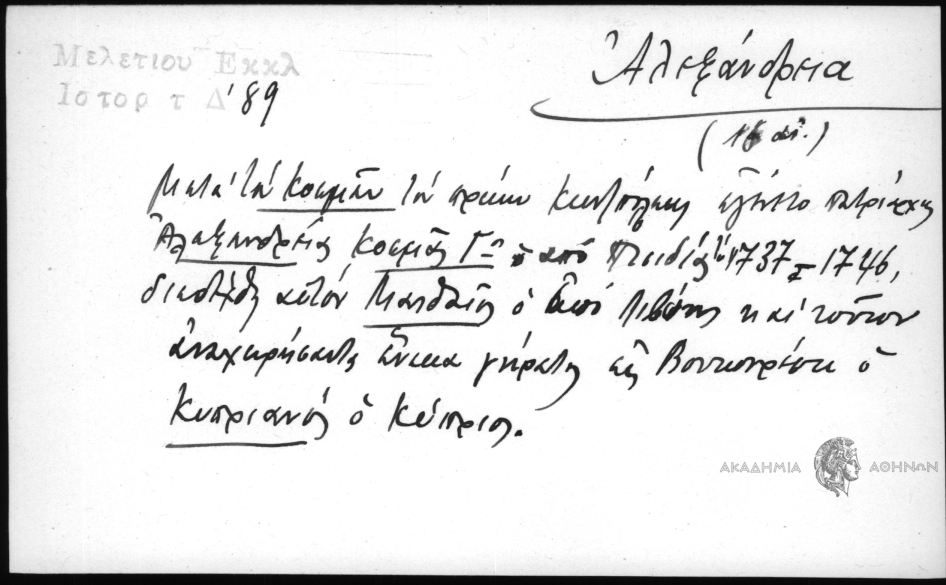 Μελετίου Εκκλ
Ιστορ τ Δ' 89
Ἀλεξάνδρεια
(18 αἰ.)
Μετὰ τὸν Κοσμᾶν τὸν πρώην Κωνζπόλεως ἐγένετο πατριάρχης
Ἀλεξανδρείας Κοσμᾶς Γ' ὁ ἀπὸ Πισιδίας 1737-1746,
διεδέχθη αὐτὸν Ματθαῖος ὁ ἀπὸ Λιβύης καὶ τοῦτον
ἀναχωρήσαντα ἕνεκα γήρατος εἰς Βουκουρέστι ὁ
Κυπριανός ὁ Κύπριος.
ΑΚΑΔΗΜΙΑ ΑΘΗΝΩΝ